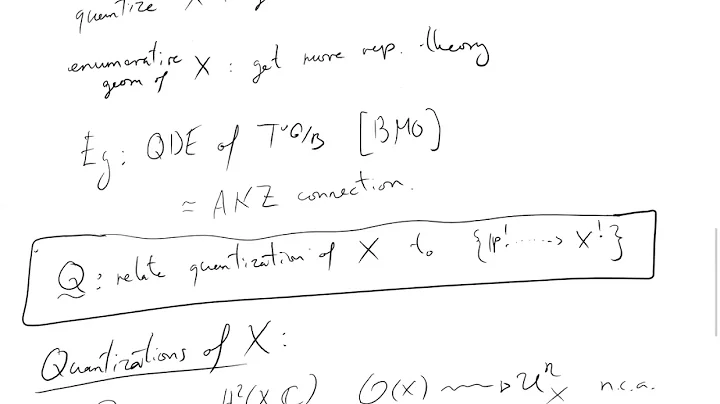 quantize X
enumerative geom of X : get more rep. theory
Eg: QDE of T^vG/B [BMO]
≈ AKZ connection.
Q: relate quantization of X to {|P^! ⇢ X^!}
Quantizations of X:
H²(X, C) O(X) ⟿ U^η_X n.c.a.